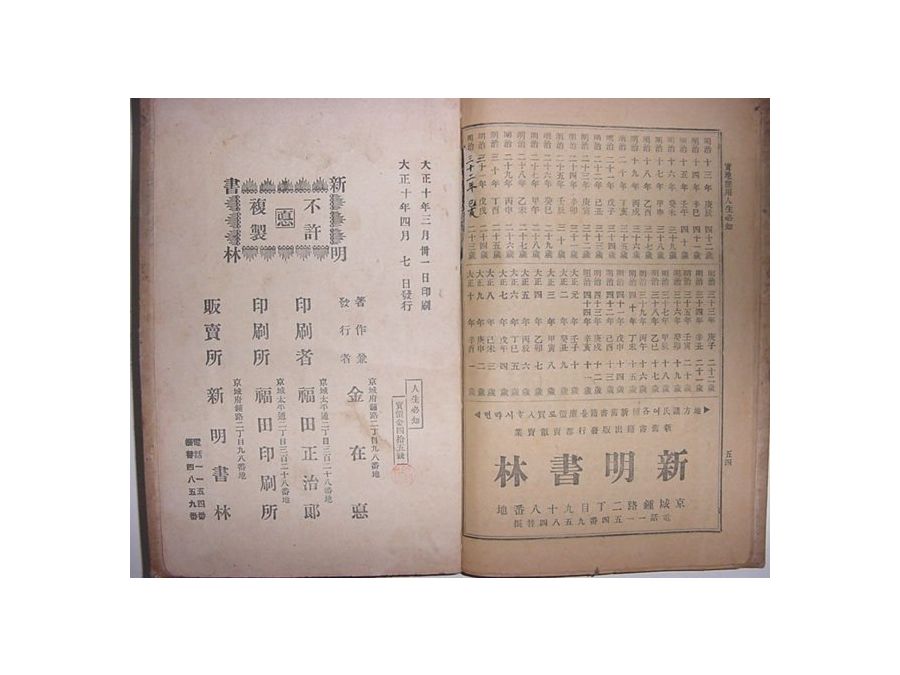 實地應用人生必知
明治十三年 庚辰 四十二歲
明治十四年 辛巳 四十一歲
明治十五年 壬午 四十歲
明治十六年 癸未 三十九歲
明治十七年 甲申 三十八歲
明治十八年 乙酉 三十七歲
明治十九年 丙戌 三十六歲
明治二十年 丁亥 三十五歲
明治二十一年 戊子 三十四歲
明治二十二年 己丑 三十三歲
明治二十三年 庚寅 三十二歲
明治二十四年 辛卯 三十一歲
明治二十五年 壬辰 三十歲
明治二十六年 癸巳 二十九歲
明治二十七年 甲午 二十八歲
明治二十八年 乙未 二十七歲
明治二十九年 丙申 二十六歲
明治三十年 丁酉 二十五歲
明治三十一年 戊戌 二十四歲
明治三十二年 己亥 二十三歲
明治三十三年 庚子 二十二歲
明治三十四年 辛丑 二十一歲
明治三十五年 壬寅 二十歲
明治三十六年 癸卯 十九歲
明治三十七年 甲辰 十八歲
明治三十八年 乙巳 十七歲
明治三十九年 丙午 十六歲
明治四十年 丁未 十五歲
明治四十一年 戊申 十四歲
明治四十二年 己酉 十三歲
明治四十三年 庚戌 十二歲
明治四十四年 辛亥 十一歲
大正元年 壬子 十歲
大正二年 癸丑 九歲
大正三年 甲寅 八歲
大正四年 乙卯 七歲
大正五年 丙辰 六歲
大正六年 丁巳 五歲
大正七年 戊午 四歲
大正八年 己未 三歲
大正九年 庚申 二歲
大正十年 辛酉 一歲
地方諸氏여
新舊書籍出版發行都賣
新明書林
京城鍾路二丁目九十八番地
電話一一五四番
五四
大正十年三月卅一日印刷
大正十年四月七日發行
新明書林
不許複製
人生必知
實價金四拾五錢
京城府鍾路二丁目九八番地
著作兼發行者 金在悳
京城太平通二丁目三百二十八番地
印刷者 福田正治郎
京城太平通二丁目三百二十八番地
印刷所 福田印刷所
京城府鍾路二丁目九八番地
販賣所 新明書林
電話一一五四番
振替四八五九番